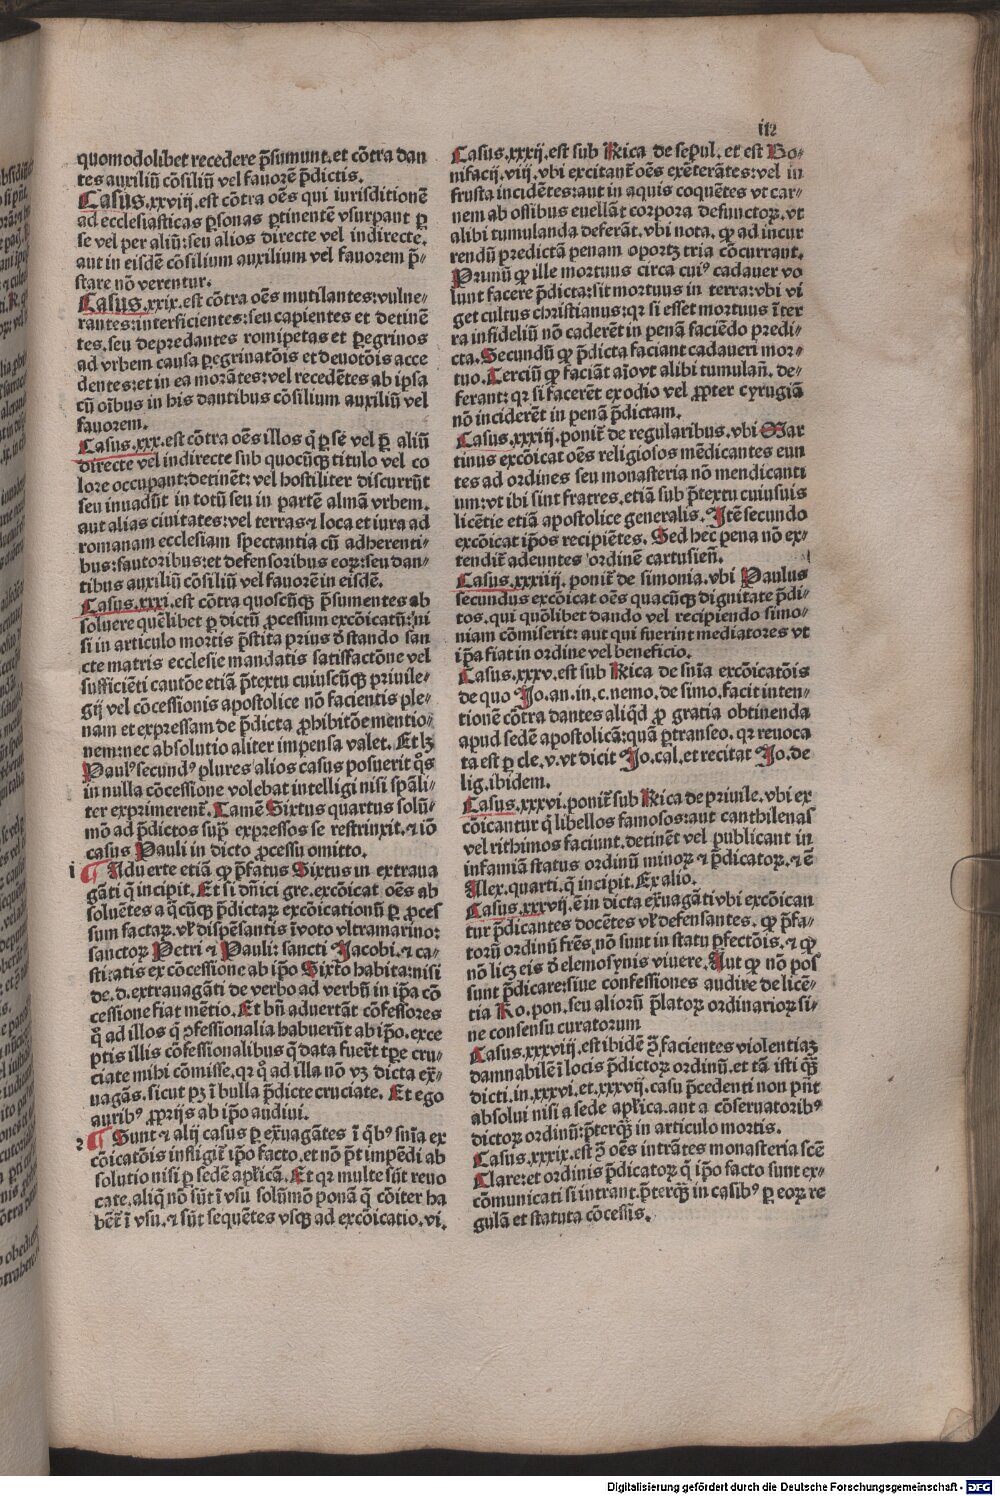 iiz
quomodolibet recedere p̄sumunt. et cōtra dan
tes auxiliū cōsiliū vel fauorē p̄dictis.
Casus. xxviij. est cōtra oēs qui iurisditionē
ad ecclesiasticas ꝑsonas ꝑtinentē vsurpant ꝑ
se vel per aliū: seu alios directe vel indirecte.
aut in eisdē cōsilium auxilium vel fauorem p̄-
stare nō verentur.
Casus. xxix. est cōtra oēs mutilantes: vulne-
rantes: interficientes: seu capientes et detinē
tes. seu depredantes romipetas et ꝑegrinos
ad vrbem causa ꝑegrinatōis et deuotōis acce
dentes: et in ea morātes: vel recedētes ab ipsa
cū oībus in his dantibus cōsilium auxiliū vel
fauorem.
Casus. xxx. est cōtra oēs illos q̄ ꝑ se vel ꝑ aliū
directe vel indirecte sub quocūqꝫ titulo vel co
lore occupant: detinēt: vel hostiliter discurrūt
seu inuadūt in totū seu in partē almā vrbem.
aut alias ciuitates: vel terras ⁊ loca et iura ad
romanam ecclesiam spectantia cū adherenti-
bus: fautoribus: et defensoribus eoꝝ: seu dan-
tibus auxiliū cōsiliū vel fauorē in eisdē.
Casus. xxxi. est cōtra quoscūqꝫ p̄sumentes ab
soluere quēlibet ꝑ dictū ꝓcessum excōicatū: ni
si in articulo mortis p̄stita prius d̄ stando san
cte matris ecclesie mandatis satisfactōne vel
sufficiēti cautōe etiā p̄textu cuiuscūqꝫ priuile-
gij vel cōcessionis apostolice nō facientis ple-
nam et expressam de p̄dicta ꝓhibitōe mentio-
nem: nec absolutio aliter impensa valet. Et lꝫ
Paulꝰ secundꝰ plures alios casus posuerit q̊s
in nulla cōcessione volebat intelligi nisi spāli-
ter exprimerent᷑. Tamē Sixtus quartus solū-
mō ad p̄dictos supꝰ expressos se restrinxit. ⁊ iō
casus Pauli in dicto ꝓcessu omitto.
i ¶ Aduerte etiā ꝙ p̄fatus Sixtus in extraua
gāti q̄ incipit. Et si dn̄ici gre. excōicat oēs ab
soluētes a q̄cūqꝫ p̄dictaꝝ excōicationū ꝑ ꝓces
sum factaꝝ. vꝉ dispēsantis ī voto vltramarino:
sanctoꝝ Petri ⁊ Pauli: sancti Jacobi. ⁊ ca-
stitatis ex cōcessione ab ip̄o Sixto habita: nisi
de. d. extrauagāti de verbo ad verbū in ip̄a cō
cessione fiat mētio. Et bn̄ aduertāt cōfessores
ꝙ ad illos q̄ ꝯfessionalia habuerūt ab ip̄o. exce
ptis illis cōfessionalibus q̄ data fuerūt tꝑe cru-
ciate mihi cōmisse. qꝛ ꝙ ad illa nō vꝫ dicta ex̄-
uagās. sicut pꝫ ī bulla p̄dicte cruciate. Et ego
auribꝰ ꝓprijs ab ip̄o audiui.
2 ¶ Sunt ⁊ alij casus ꝑ ex̄uagātes ī q̄bꝰ sn̄ia ex
cōicatōis infligit᷑ ip̄o facto. et nō p̄t impēdi ab
solutio nisi ꝑ sedē aplīcā. Et qꝛ multe sūt reuo
cate. aliq̄ nō sūt ī vsu solūmō ponā q̄ cōiter ha
bēt᷑ ī vsu. ⁊ sūt sequētes vsqꝫ ad excōicatio. vi.
Casus. xxxij. est sub Rica de sepul. et est Bo-
nifacij. viij. vbi excitant᷑ oēs exēterātes: vel in
frusta incidētes: aut in aquis coquētes vt car-
nem ab ossibus euellāt corpora defunctoꝝ. vt
alibi tumulanda deferāt. vbi nota. ꝙ ad incur
rendū predictā penam oportꝫ tria cōcurrant.
Primū ꝙ ille mortuus circa cuiꝰ cadauer vo
lunt facere p̄dicta: sit mortuus in terra: vbi vi
get cultus christianus: qꝛ si esset mortuus ī ter
ra infideliū nō caderēt in penā faciēdo predi-
cta. Secundū ꝙ p̄dicta faciant cadaueri mor-
tuo. Terciū ꝙ faciāt aīo vt alibi tumulan̄. de-
ferant: qꝛ si facerēt ex odio vel ꝓpter cyrugiā
nō inciderēt in penā p̄dictam.
Casus. xxxiij. ponit᷑ de regularibus. vbi Mar
tinus excōicat oēs religiosos mēdicantes eun
tes ad ordines seu monasteria nō mendicanti
um: vt ibi sint fratres. etiā sub p̄textu cuiusuis
licētie etiā apostolice generalis. Itē secundo
excōicat ip̄os recipiētes. Sed hec pena nō ex-
tendit᷑ adeuntes ordinē cartusien̄.
Casus. xxxiiij. ponit᷑ de simonia. vbi Paulus
secundus excōicat oēs quacūqꝫ dignitate p̄di-
tos. qui quōlibet dando vel recipiendo simo-
niam cōmiserit: aut qui fuerint mediatores vt
ip̄a fiat in ordine vel beneficio.
Casus. xxxv. est sub Rica de sn̄ia excōicatōis
de quo Jo. an. in. c. nemo. de simo. facit inten-
tionē cōtra dantes aliq̄d ꝓ gratia obtinenda
apud sedē apostolicā: quā ꝑtranseo. qꝛ reuoca
ta est ꝑ cle. v. vt dicit Jo. cal. et recitat Jo. de
lig. ibidem.
Casus. xxxvi. ponit᷑ sub Rica de priuile. vbi ex
cōicantur q̄ libellos famosos: aut canthilenas
vel rithimos faciunt. detinēt vel publicant in
infamiā status ordinū minoꝝ ⁊ p̄dicatoꝝ. ⁊ ē
Alex. quarti. q̄ incipit. Ex alio.
Casus. xxxvij. ē in dicta exuagāti vbi excōican
tur p̄dicantes docētes vꝉ defensantes. ꝙ p̄fa-
torū ordinū fr̄es. nō sunt in statu ꝑfectōis. ⁊ ꝙ
nō licꝫ eis d̄ elemosynis viuere. Aut ꝙ nō pos
sunt p̄dicare: siue confessiones audire de licē-
tia Ro. pon. seu aliorū p̄latoꝝ ordinarioꝝ si-
ne consensu curatorum
Casus. xxxviij. est ibidē ꝯ̄ facientes violentiaꝫ
damnabilē ī locis p̄dictoꝝ ordinū. et tā isti q̄ꝫ
dicti. in. xxxvi. et. xxxvij. casu p̄cedenti non pn̄t
absolui nisi a sede aplīca. aut a cōseruatoribꝰ
dictoꝝ ordinū: p̄terqꝫ in articulo mortis.
Casus. xxxix. est ꝯ̄ oēs intrātes monasteria scē
Clare: et ordinis p̄dicatoꝝ q̄ ip̄o facto sunt ex-
cōmunicati si intrant. p̄terqꝫ in casibꝰ ꝑ eoꝝ re
gulā et statuta cōcessis.
Digitalisierung gefördert durch die Deutsche Forschungsgemeinschaft - DFG